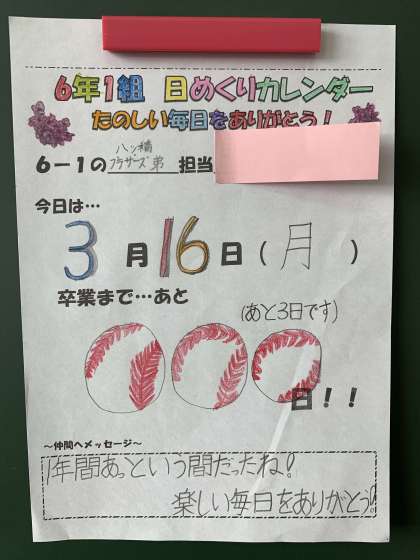 6年1組 日めくりカレンダー
たのしい毎日をありがとう！
6－1の八ッ橋ブラザーズ弟担当
今日は…
3月16日(月)
卒業まで…あと
(あと3日です)
日！！
～仲間へメッセージ～
1年間あっという間だったね!
楽しい毎日をありがとう!